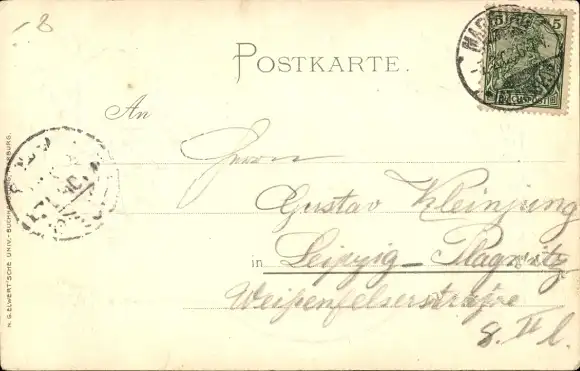 8
POSTKARTE.
5
MARBURG
An
Herrn
Gustav Kleinjung
in Leipzig-Plagwitz
Weißenfelserstraße
8. II l.
N. G. ELWERT'SCHE UNIV.-BUCHHANDLUNG, MARBURG.